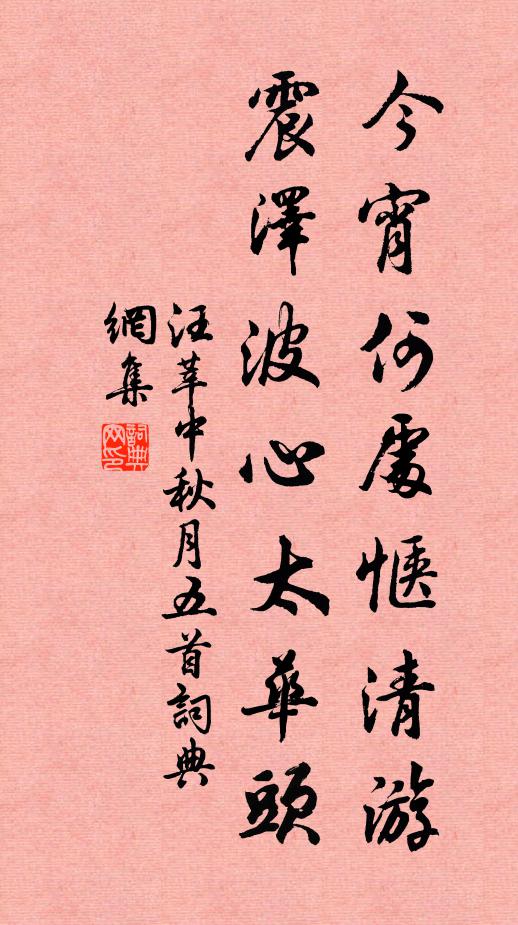 今宵何處愜清游
震澤波心太華頭
汪莘中秋月五首詞典
網集
詞典
网印